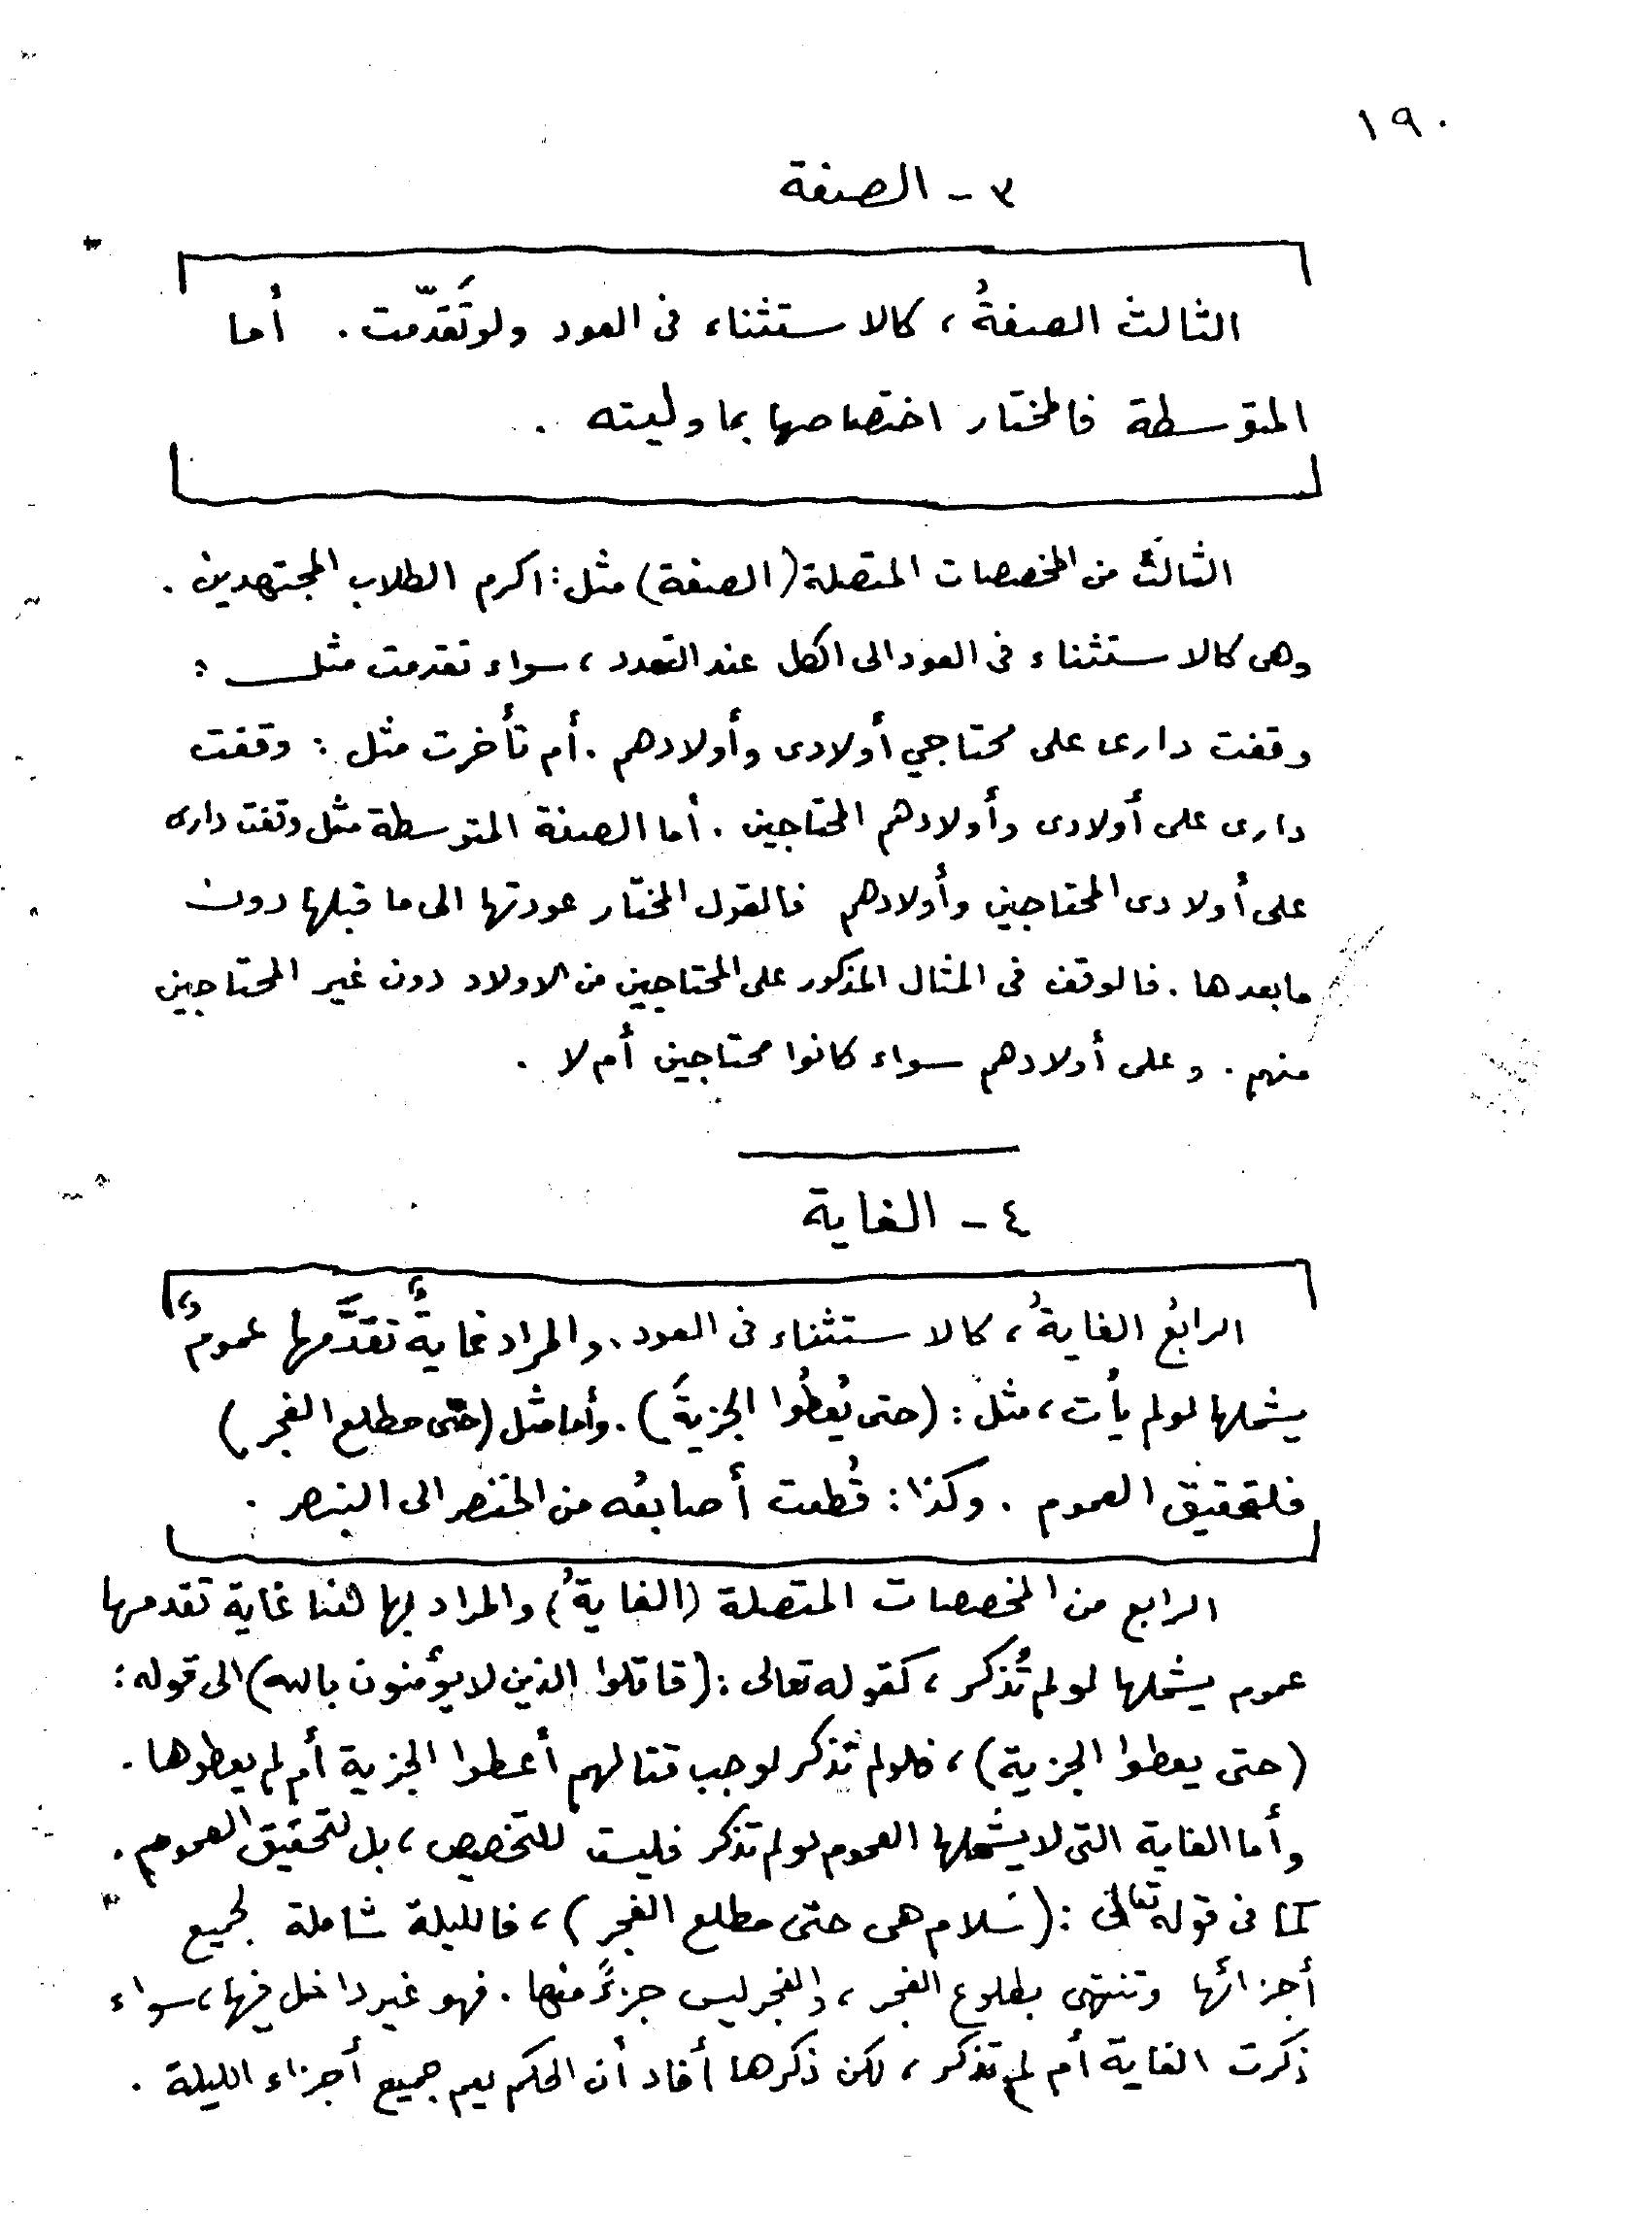 ١٩٠
٣ - الصفة
الثالث الصفةُ ، كالاستثناء فى العود ولو تَقدّمت . أما
المتوسطة فالمختار اختصاصها بما وليته .
الثالث من المخصصات المتصلة (الصفة) مثل : اكرم الطلاب المجتهدين .
وهى كالاستثناء فى العود الى الكل عند التعدد ، سواء تقدمت مثل :
وقفت دارى على محتاجي أولادى وأولادهم . أم تأخرت مثل : وقفت
دارى على أولادى وأولادهم المحتاجين . أما الصفة المتوسطة مثل وقفت دارى
على أولادى المحتاجين وأولادهم فالقول المختار عودتها الى ما قبلها دون
مابعدها . فالوقف فى المثال المذكور على المحتاجين من الاولاد دون غير المحتاجين
منهم . وعلى أولادهم سواء كانوا محتاجين أم لا .
٤ - الغاية
الرابعُ الغايةُ ، كالاستثناء فى العود . والمراد غايةٌ تقدَّمها عمومٌ
يشملها لو لم يأت ، مثل : (حتى يُعطُوا الجزيةَ) . وأما مثل (حتى مطلع الفجر)
فلتحقيق العموم . وكذا : قُطعت أصابعُه من الخنصر الى البنصر .
الرابع من المخصصات المتصلة (الغايةُ) والمراد بها هنا غاية تقدمها
عموم يشملها لو لم تُذكر ، كقوله تعالى : (قاتلوا الذين لا يؤمنون بالله) الى قوله :
(حتى يعطوا الجزية) ، فلو لم تذكر لوجب قتالهم أعطوا الجزية أم لم يعطوها .
وأما الغاية التى لا يشملها العموم لو لم تذكر فليست للتخصيص ، بل لتحقيق العموم .
كما فى قوله تعالى : (سَلام هى حتى مطلع الفجر) ، فالليلة شاملة لجميع
أجزائها وتنتهى بطلوع الفجر ، والفجر ليس جزءً منها . فهو غير داخل فيها ، سواء
ذكرت الغاية أم لم تذكر ، لكن ذكرها أفاد أن الحكم يعم جميع أجزاء الليلة .